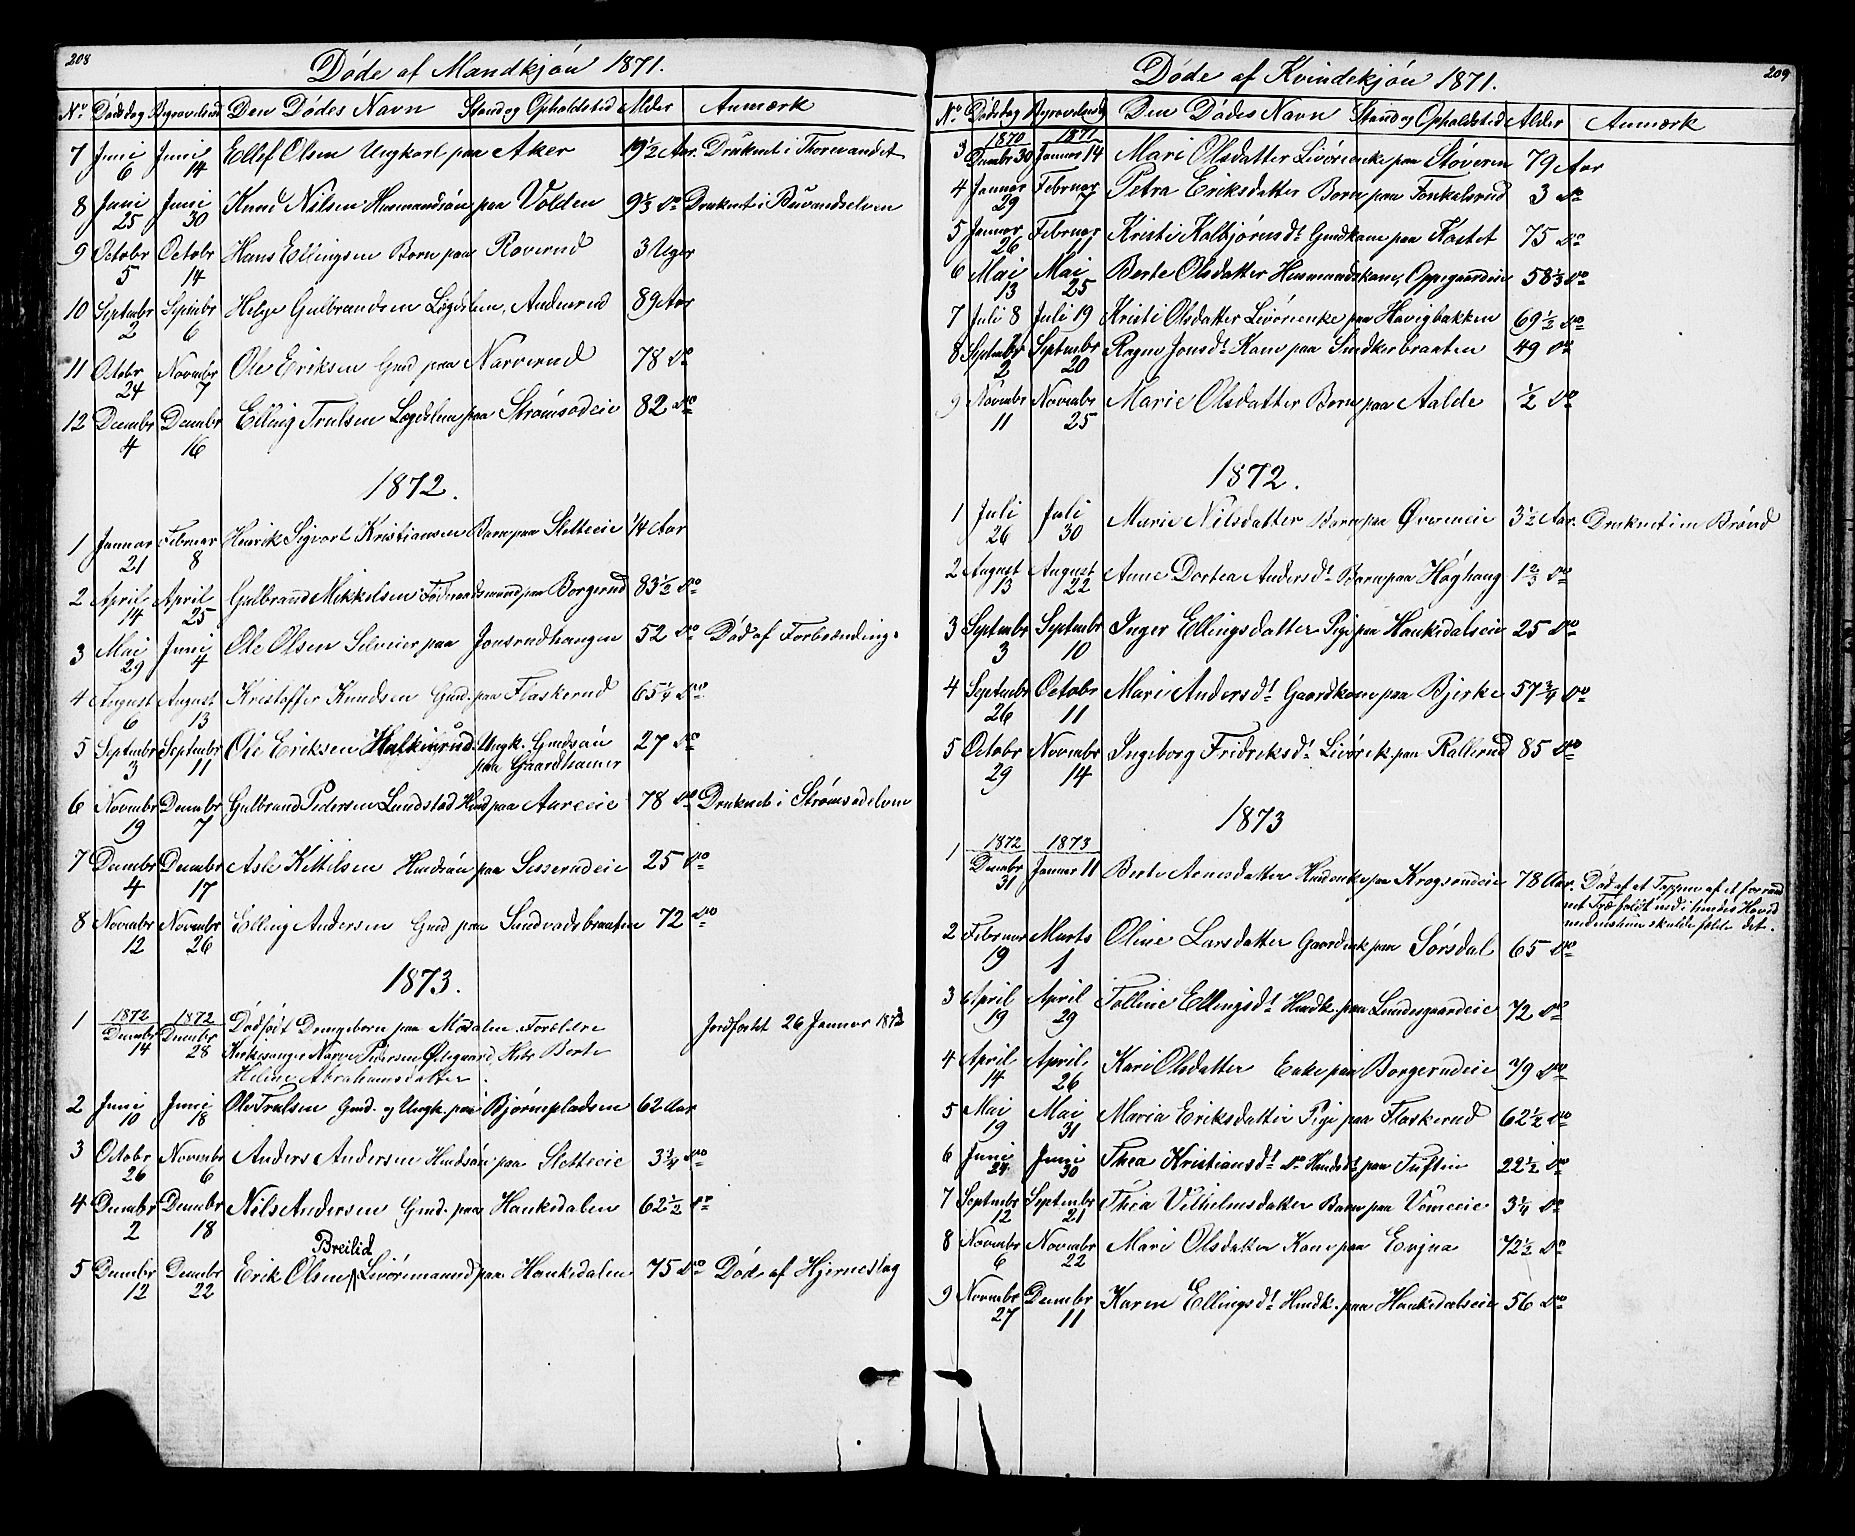 208
Døde af Mandkjøn 1871.
No. Dødsdag Begravelsesd Den Dødes Navn Stand og Opholdsted Alder Anmærk
7 Juni 6 Juni 14 Ellef Olsen Ungkarl paa Aker 19 1/2 Aar. Druknet i Thorevandet
8 Juni 25 Juni 30 Knud Nilsen Husmandsøn paa Volden 9 1/3 Do Druknet i Buvandselven
9 Octobr 5 Octobr 14 Hans Ellingsen Barn paa Roverud 3 Uger
10 Septembr 2 Septembr 6 Helge Gulbrandsen Lægdslem, Anderud 89 Aar
11 Octobr 24 Novembr 7 Ole Eriksen Gmd paa Narverud 78 Do
12 Decembr 4 Decembr 16 Elling Trulsen Lægdslem paa Strømsodeie 82 Do
1872.
1 Januar 21 Februar 8 Henrik Sigvort Kristiansen Barn paa Sletteeie 1/4 Aar
2 April 14 April 25 Gulbrand Mikkelsen Føderaadsmand paa Borgerud 83 1/2 Do
3 Mai 29 Juni 4 Ole Olsen Selveier paa Jonsrudhaugen 52 Do Død af Forbrænding.
4 August 6 August 13 Kristoffer Knudsen Gmd. paa Flaskerud 65 1/4 Do
5 Septembr 3 Septembr 11 Ole Eriksen Halkinrud Ungk. Gmdsøn 27 Do
paa Gaardhamer
6 Novembr 19 Decembr 7 Gulbrand Pedersen Lundstad Hmd paa Aareeie 78 Do Druknet i Strømsodelven
7 Decembr 4 Decembr 17 Asle Kittilsen Hmdsøn paa Sesserudeie 25 Do
8 Novembr 12 Novembr 26 Elling Andersen Gmd paa Sandvadsbraaten 72 Do
1873.
1 1872 Decembr 14 1872 Decembr 28 Dødfødt Drengebarn paa Modalen, Forældre Jordfæstet 26 Januar 1873
Kirkesanger Narve Pedersen Ødegaard, Hstr Berte
Helene Abrahamsdatter.
2 Juni 10 Juni 18 Ole Trulsen Gmd. og Ungk. paa Bjørnpladsen 62 Aar
3 Octobr 26 Novembr 6 Anders Andersen Hmdsøn paa Sletteeie 3 3/4 Do
4 Decembr 2 Decembr 18 Nils Andersen Gmd. paa Haukedalen 62 1/2 Do
Breilid
5 Decembr 12 Decembr 22 Erik Olsen Livøremand paa Haukedalen 75 Do Døde af Hjerneslag
209
Døde af Kvindekjøn 1871.
No Dødsdag Begravelsesd Den Dødes Navn Stand og Opholdsted Alder Anmærk
3 1870 Decembr 30 1871 Januar 14 Mari Olsdatter Livørenke paa Støveren 79 Aar
4 Januar 29 Februar 7 Petra Eriksdatter Barn paa Fonkalsrud 3 Do
5 Januar 26 Februar 11 Kristi Kolbjørnsdt Gmdkone paa Kostet 75 Do
6 Mai 13 Mai 25 Berte Olsdatter Husmandskone, Oppegaardeie 58 1/3 Do
7 Juli 8 Juli 19 Kristi Olsdatter Livørenke paa Havigbakken 69 1/2 Do
8 Septembr 2 Septembr 20 Ragne Jonsdt Kone paa Snedkerbraaten 49 Do
9 Novembr 11 Novembr 25 Marie Olsdatter Barn paa Aalde 1/2 Do
1872.
1 Juli 26 Juli 30 Marie Nilsdatter Barn paa Øvreneie 3 1/2 Aar. Druknet i en Brønd
2 August 13 August 22 Anne Dortea Andersdt Barn paa Høghaug 1 2/3 Do
3 Septembr 3 Septembr 10 Inger Ellingsdatter Pige paa Haukedalseie 25 Do
4 Septembr 26 Octobr 11 Mari Andersdt Gaardkone paa Bjerke 57 3/4 Do
5 Octobr 29 Novembr 14 Ingeborg Fridriksdt Livørek paa Rallerud 85 Do
1873
1 1872 Decembr 31 1873 Januar 11 Berte Arnesdatter Hmdenke paa Krogsrudeie 78 Aar. Død af at Toppen af et forraad
net Træ faldt ned i hendes Hoved
medens hun skulde fælde det.
2 Februar 19 Marts 1 Oline Larsdatter Gaardenk paa Sørsdal 65 Do
3 April 19 April 29 Tolline Ellingsdt Hmdk. paa Lundesgaardeie 72 Do
4 April 14 April 26 Kari Olsdatter Enke paa Borgerudeie 79 Do
5 Mai 19 Mai 31 Maria Eriksdatter Pige paa Flaskerud 62 1/2 Do
6 Juni 24 Juni 30 Thea Kristiansdt Do Hmdsdt paa Tuftin 22 1/2 Do
7 Septembr 12 Septembr 21 Thea Vilhelmsdatter Barn paa Vømeeie 3 1/4 Do
8 Novembr 6 Novembr 22 Mari Olsdatter Kone paa Evjua 72 1/2 Do
9 Novembr 27 Decembr 11 Karen Ellingsdt Hmdk. paa Haukedalseie 56 Do